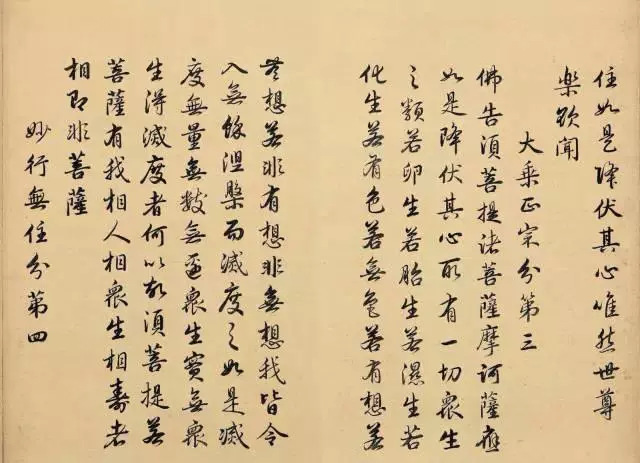 住如是降伏其心唯然世尊
樂欲聞
大乘正宗分第三
佛告須菩提諸菩薩摩訶薩應
如是降伏其心所有一切衆生
之類若卵生若胎生若濕生若
化生若有色若無色若有想若
無想若非有想非無想我皆令
入無餘涅槃而滅度之如是滅
度無量無數無邊衆生實無衆
生得滅度者何以故須菩提若
菩薩有我相人相衆生相壽者
相即非菩薩
妙行無住分第四